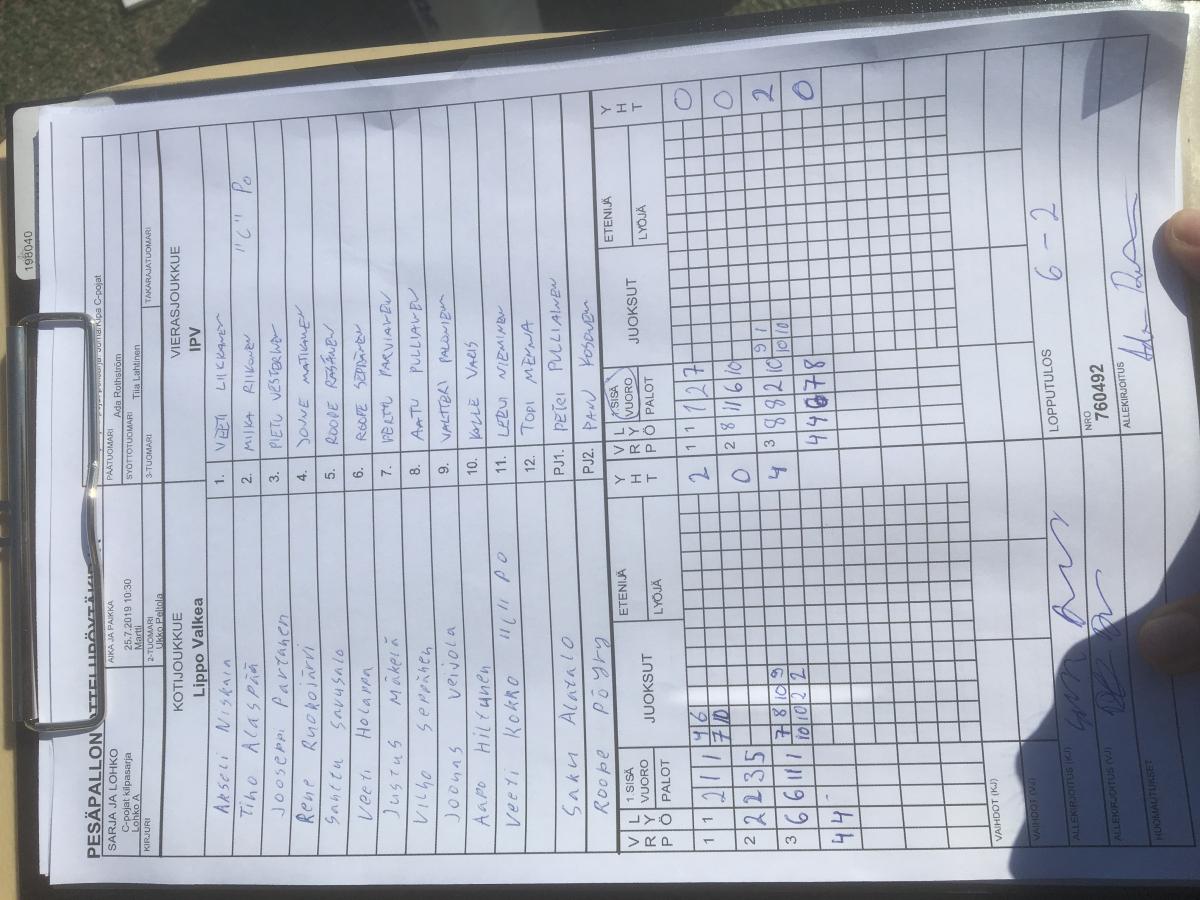 198040
PESÄPALLON OTTELUPÖYTÄKI
SARJA JA LOHKO
C-pojat kilpasarja
Lohko A
KIRJURI
AIKA JA PAIKKA
25.7.2019 10:30
Martti
2-TUOMARI
Ukko Peltola
PÄÄTUOMARI
Ada Rothström
C-pojat
SYÖTTÖTUOMARI
Tiia Lahtinen
3-TUOMARI
TAKARAJATUOMARI
KOTIJOUKKUE
Lippo Valkea
VIERASJOUKKUE
IPV
Akseli Niskala 1. VEETI LIIKKANEN
Tiho Alaspää 2. MIIKA RIIKONEN "C" Po
Jooseppi Partanen 3. PIETU VESTERINEN
Rene Ruokojärvi 4. JONNE MATIKAINEN
Santtu Savusalo 5. ROOPE RÄSÄNEN
Veeti Holappa 6. ROOPE SEPPÄNEN
Justus Mäkelä 7. PERTTU PARVIAINEN
Vilho Seppänen 8. AATU PULLIAINEN
Joonas Veijola 9. VALTTERI PALONIEMI
Aapo Hiltunen 10. KALLE VARIS
Veeti Kokko "C" PO 11. LEEVI NIEMINEN
12. TOPI MEKNA
Saku Alatalo PJ1. PETRI PULLIAINEN
Roope Pöyry PJ2. PANU KOSONEN
V R P L Y Ö 1.SISÄ VUORO PALOT JUOKSUT ETENIJÄ LYÖJÄ Y H T
V R P L Y Ö 1.SISÄ VUORO PALOT JUOKSUT ETENIJÄ LYÖJÄ Y H T
1 1 2 1 1 4 6 2 1 1 1 2 7 0
7 10
2 2 2 3 5 0 2 8 11 6 10 0
3 6 6 11 1 7 8 10 9 4 3 8 8 2 10 9 1 2
10 10 2 2 10 10
4 4 4 4 6 7 8 0
VAIHDOT (KJ)
VAIHDOT (VJ)
ALLEKIRJOITUS (KJ)
LOPPUTULOS 6 - 2
ALLEKIRJOITUS (VJ)
NRO
760492
HUOMAUTUKSET
ALLEKIRJOITUS